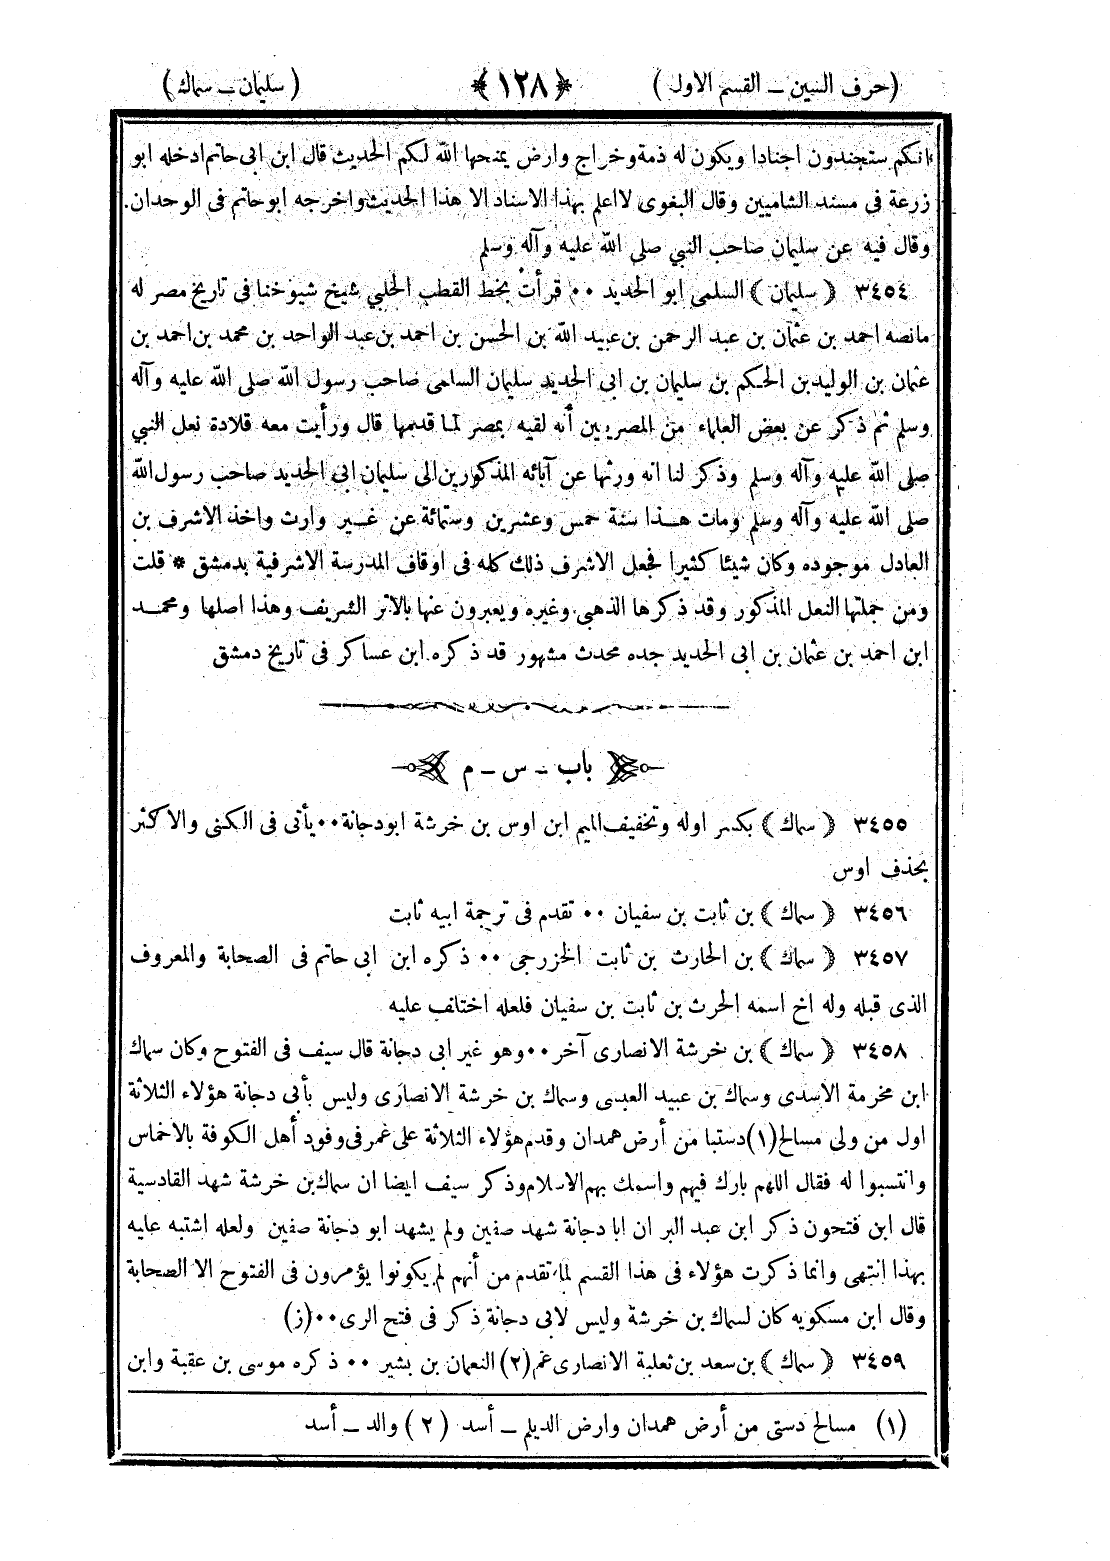 (حرف السين ــ القسم الاول) ﴿١٢٨﴾ (سليمان ــ سماك)
انكم ستجندون اجنادا ويكون له ذمة وخراج وارض يمنحها الله لكم الحديث قال ابن ابى حاتم ادخله ابو
زرعة فى مسند الشاميين وقال البغوى لا اعلم بهذا الاسناد الا هذا الحديث واخرجه ابو حاتم فى الوحدان.
وقال فيه عن سليمان صاحب النبي صلى الله عليه وآله وسلم
٣٤٥٤ ﴿ سليمان ﴾ السلمى ابو الحديد ٠٠ قرأت بخط القطب الحلبي شيخ شيوخنا فى تاريخ مصر له
مانصه احمد بن عثمان بن عبد الرحمن بن عبيد الله بن الحسن بن احمد بن عبد الواحد بن محمد بن احمد بن
عثمان بن الوليد بن الحكم بن سليمان بن ابى الحديد سليمان السلمى صاحب رسول الله صلى الله عليه وآله
وسلم ثم ذكر عن بعض العلماء من المصريين أنه لقيه بمصر لما قدمها قال ورأيت معه قلادة نعل النبي
صلى الله عليه وآله وسلم وذكر لنا انه ورثها عن آبائه المذكورين الى سليمان ابى الحديد صاحب رسول الله
صلى الله عليه وآله وسلم ومات هــذا سنة خمس وعشرين وستمائة عن غــير وارث واخذ الاشرف بن
العادل موجوده وكان شيئا كثيرا فجعل الاشرف ذلك كله فى اوقاف المدرسة الاشرفية بدمشق * قلت
ومن جملتها النعل المذكور وقد ذكرها الذهبى وغيره ويعبرون عنها بالاثر الشريف وهذا اصلها ومحمــد
ابن احمد بن عثمان بن ابى الحديد جده محدث مشهور قد ذكره ابن عساكر فى تاريخ دمشق
باب ــ س ــ م
٣٤٥٥ ﴿ سماك ﴾ بكسر اوله وتخفيف الميم ابن اوس بن خرشة ابو دجانة ٠٠ يأتى فى الكنى والاكثر
بحذف اوس
٣٤٥٦ ﴿ سماك ﴾ بن ثابت بن سفيان ٠٠ تقدم فى ترجمة ابيه ثابت
٣٤٥٧ ﴿ سماك ﴾ بن الحارث بن ثابت الخزرجى ٠٠ ذكره ابن ابى حاتم فى الصحابة والمعروف
الذى قبله وله اخ اسمه الحرث بن ثابت بن سفيان فلعله اختلف عليه
٣٤٥٨ ﴿ سماك ﴾ بن خرشة الانصارى آخر ٠٠ وهو غير ابى دجانة قال سيف فى الفتوح وكان سماك
ابن مخرمة الاسدى وسماك بن عبيد العبسى وسماك بن خرشة الانصارى وليس بأبى دجانة هؤلاء الثلاثة
اول من ولى مسالح (١) دستبا من أرض همدان وقدم هؤلاء الثلاثة على عمر فى وفود أهل الكوفة بالاخماس
وانتسبوا له فقال اللهم بارك فيهم واسمك بهم الاسلام وذكر سيف ايضا ان سماك بن خرشة شهد القادسية
قال ابن فتحون ذكر ابن عبد البر ان ابا دجانة شهد صفين ولم يشهد ابو دجانة صفين ولعله اشتبه عليه
بهذا انتهى وانما ذكرت هؤلاء فى هذا القسم لما تقدم من أنهم لم يكونوا يؤمرون فى الفتوح الا الصحابة
وقال ابن مسكويه كان لسماك بن خرشة وليس لابى دجانة ذكر فى فتح الرى ٠٠ (ز)
٣٤٥٩ ﴿ سماك ﴾ بن سعد بن ثعلبة الانصارى عم (٢) النعمان بن بشير ٠٠ ذكره موسى بن عقبة وابن
(١) مسالح دستى من أرض همدان وارض الديلم ــ أسد (٢) والد ــ أسد